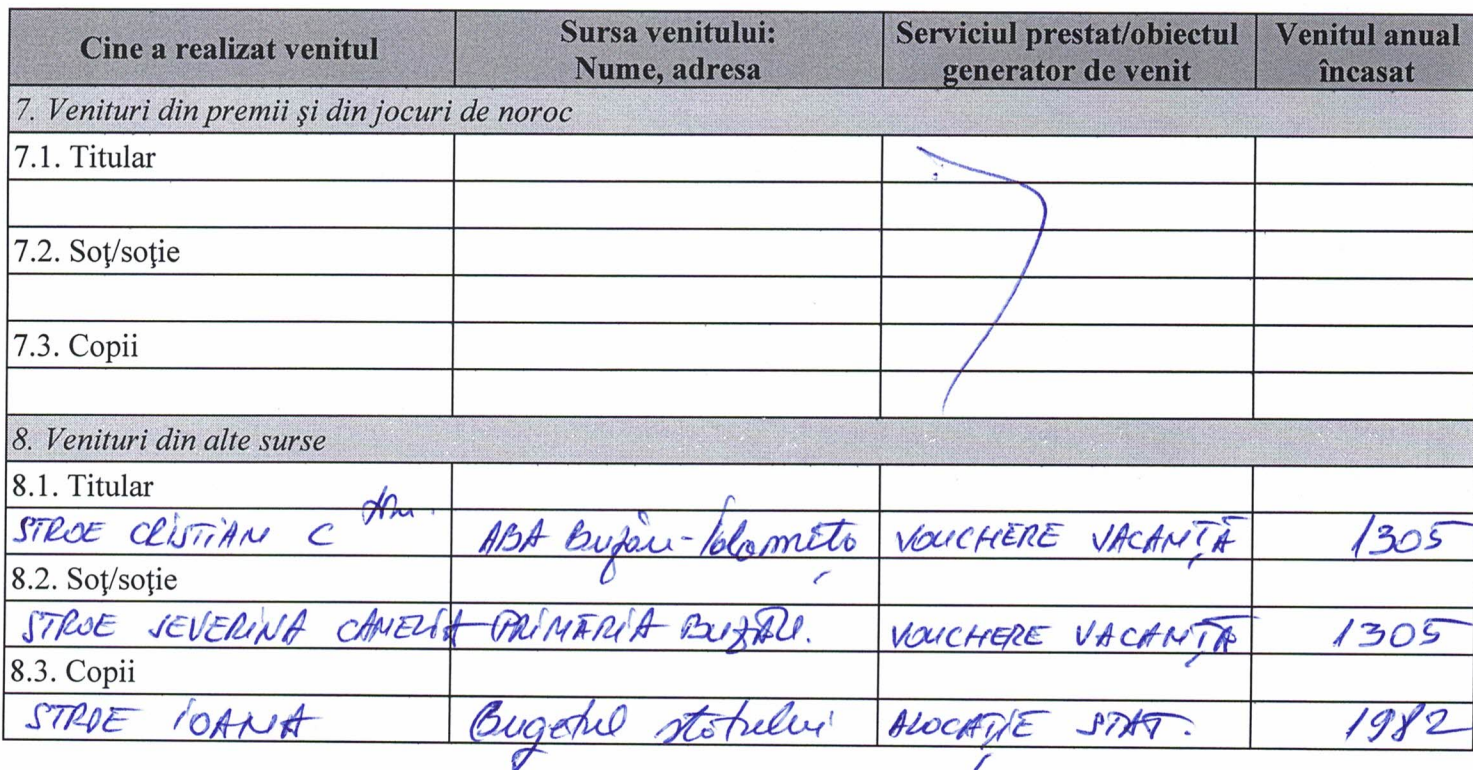 Cine a realizat venitul
Sursa venitului: Nume, adresa
Serviciul prestat/obiectul generator de venit
Venitul anual încasat
7. Venituri din premii şi din jocuri de noroc
7.1. Titular
7.2. Soţ/soţie
7.3. Copii
8. Venituri din alte surse
8.1. Titular
STROE CRISTIAN C ABA Buzău-Ialomița VOUCHERE VACANȚĂ 1305
8.2. Soţ/soţie
STROE SEVERINA CAMELIA PRIMĂRIA BUZĂU. VOUCHERE VACANȚĂ 1305
8.3. Copii
STROE IOANA Bugetul statului ALOCAȚIE STAT. 1982